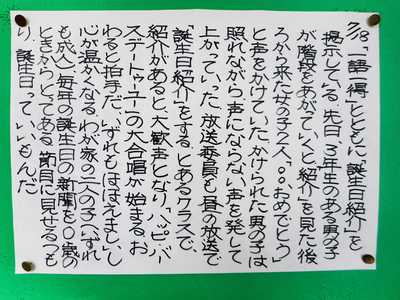 7/18「一語一得」とともに「誕生日紹介」を
掲示している。先日、3年生のある男の子
が階段をあがっていくと「紹介」を見た後
ろから来た女の子2人「○○、おめでとう」
と声をかけていた。かけられた男の子は
照れながら声にならない声を発して
上がっていった。放送委員も昼の放送で
「誕生日紹介」をする。とあるクラスで、
紹介があると、大歓声となり「ハッピバ
スデートゥーユー」の大合唱が始まる。お
わると拍手だ。いずれもほほえましい。
心が温かくなる。わが家の二人の子(いずれ
も成人)毎年の誕生日の新聞を○歳の
ときからとってある。節目に見せるつも
り。誕生日っていいもんだ